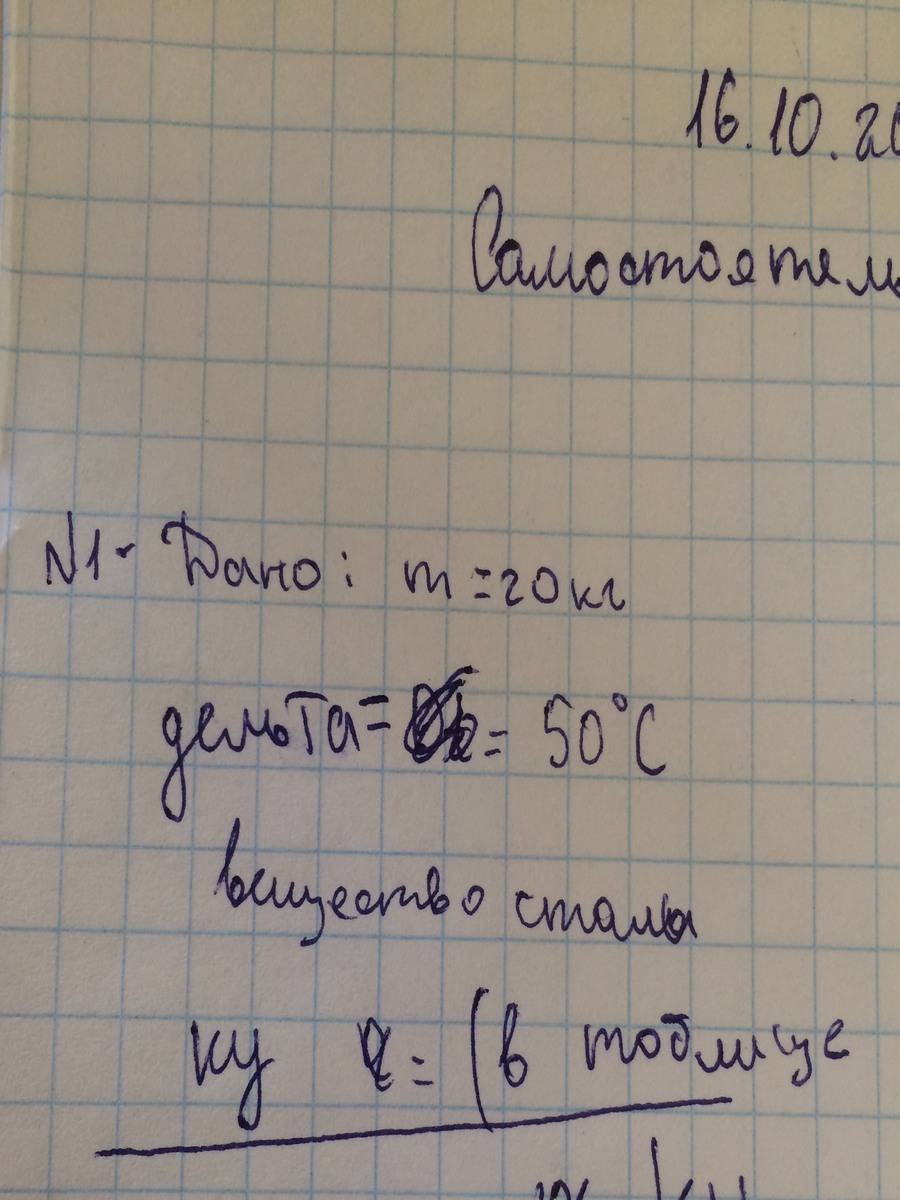 16.10.20
Самостоятель
N1. Дано: m = 20 кг
дельта = = 50°C
вещество сталь
ку = (в таблице